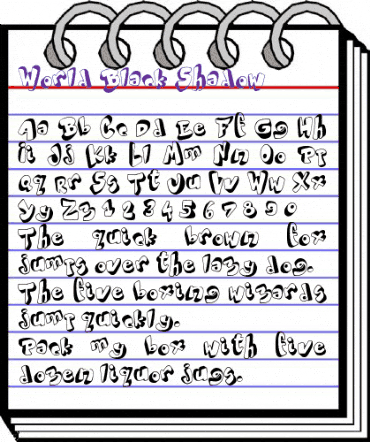 World Black Shadow
Aa Bb Cc Dd Ee Ff Gg Hh
Ii Jj Kk Ll Mm Nn Oo Pp
Qq Rr Ss Tt Uu Vv Ww Xx
Yy Zz 1 2 3 4 5 6 7 8 9 0
The quick brown fox
jumps over the lazy dog.
The five boxing wizards
jump quickly.
Pack my box with five
dozen liquor jugs.